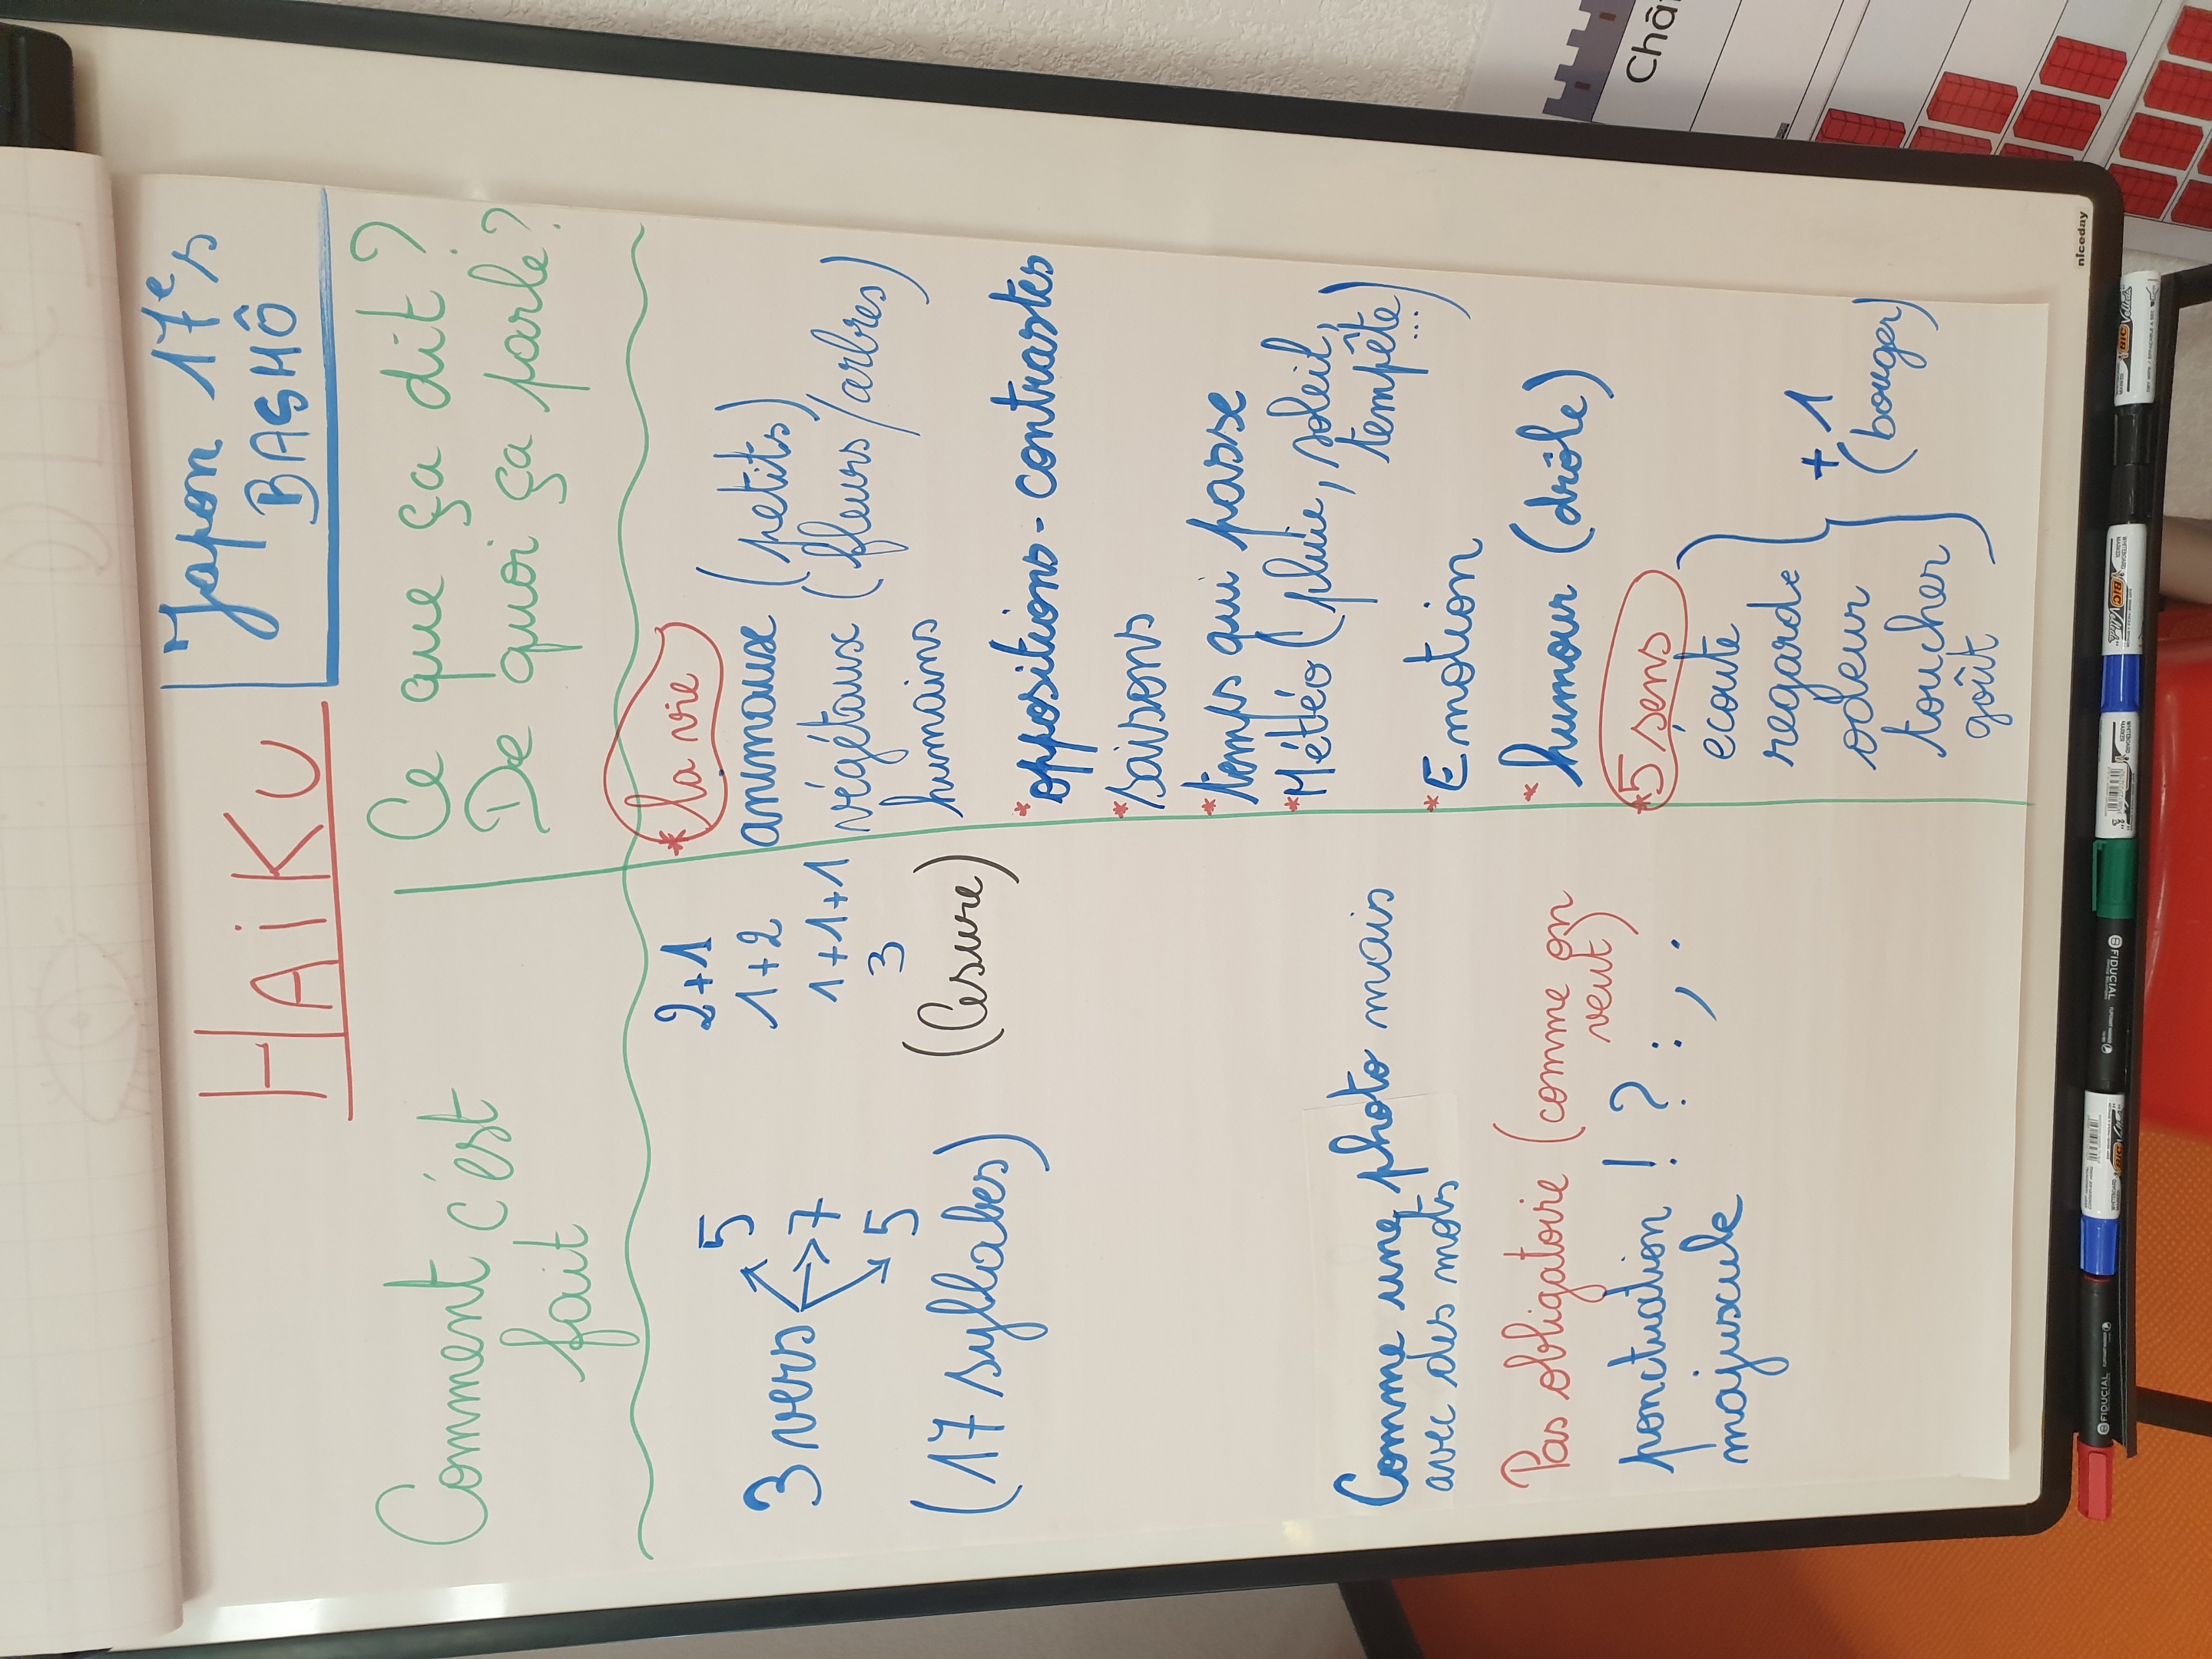 HAiKU
Japon 17e s
BASHÔ
Comment c'est
fait
3 vers
5
7
5
(17 syllabes)
2+1
1+2
1+1+1
3
(Cesure)
Comme une photo mais
avec des mots
Pas obligatoire (comme on
veut)
ponctuation ! ? : , .
majuscule
Ce que ça dit ?
De quoi ça parle ?
* la vie
animaux (petits)
végétaux (fleurs/arbres)
humains
* oppositions - contrastes
* saisons
* temps qui passe
* Météo (pluie, soleil,
tempête...)
* Emotion
* humour (drôle)
* 5 sens
écoute
regarde
odeur
toucher
goût
+ 1
(bouger)
niceday
Chât
FIDUCIAL
FIDUCIAL
BIC
BIC
BIC